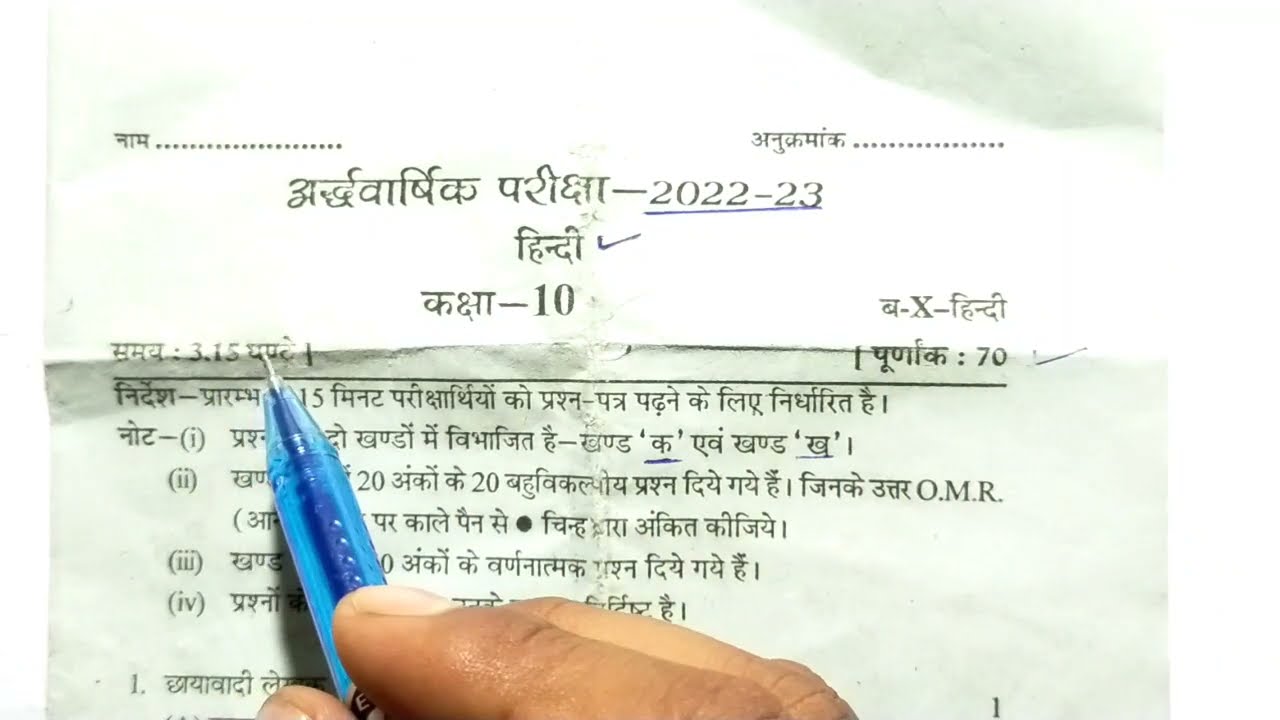 नाम ...................... अनुक्रमांक ..................
अर्द्धवार्षिक परीक्षा–2022-23
हिन्दी
कक्षा–10
ब-X–हिन्दी
समय : 3.15 घण्टे | | पूर्णांक : 70
निर्देश–प्रारम्भ 15 मिनट परीक्षार्थियों को प्रश्न-पत्र पढ़ने के लिए निर्धारित है।
नोट–(i) प्रश्न दो खण्डों में विभाजित है–खण्ड ‘क’ एवं खण्ड ‘ख’।
(ii) 20 अंकों के 20 बहुविकल्पीय प्रश्न दिये गये हैं। जिनके उत्तर O.M.R.
पर काले पैन से ● चिन्ह द्वारा अंकित कीजिये।
(iii) खण्ड अंकों के वर्णनात्मक प्रश्न दिये गये हैं।
(iv) प्रश्नों है।
1. छायावादी 1